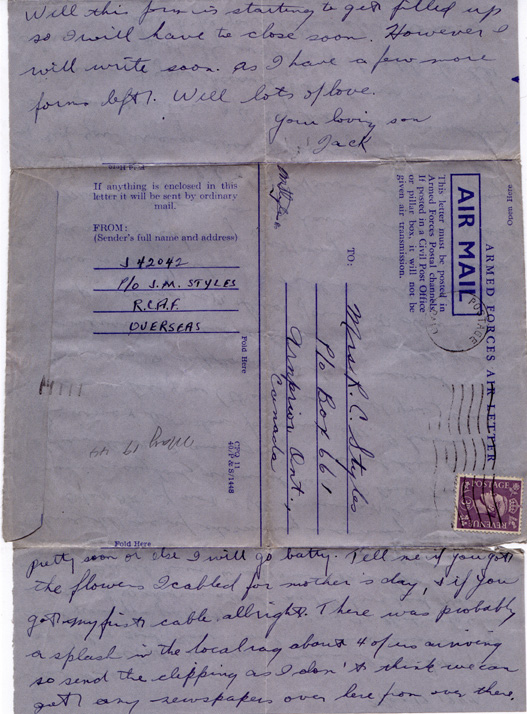 Will this form is starting to get filled up
so I will have to close soon. However I
will write soon. as I have a few more
forms left. Will lots of love.
Your loving son
Jack
If anything is enclosed in this
letter it will be sent by ordinary
mail.
FROM:
(Sender's full name and address)
J42042
P/o J.M. STYLES
R.C.A.F.
OVERSEAS
Fold Here
Fold Here
TO:
Mrs R. C. Styles
P/o Box 661
Arnprior Ont.,
Canada
This letter must be posted in
Armed Forces Postal channels.
If posted in a Civil Post Office
or pillar box, it will not be
given air transmission.
AIR MAIL
ARMED FORCES AIR LETTER
Open Here
POSTAGE
REVENUE
pretty soon or else I will go batty. Tell me if you got
the flowers I cabled for mother's day, & if you
got my first cable allright. There was probably
a splash in the local rag about 4 of us arriving
so send the clipping as I don't think we can
get any newspapers over here from over there.